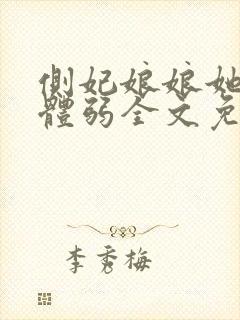 側妃娘娘她
體弱全文免
李秀梅